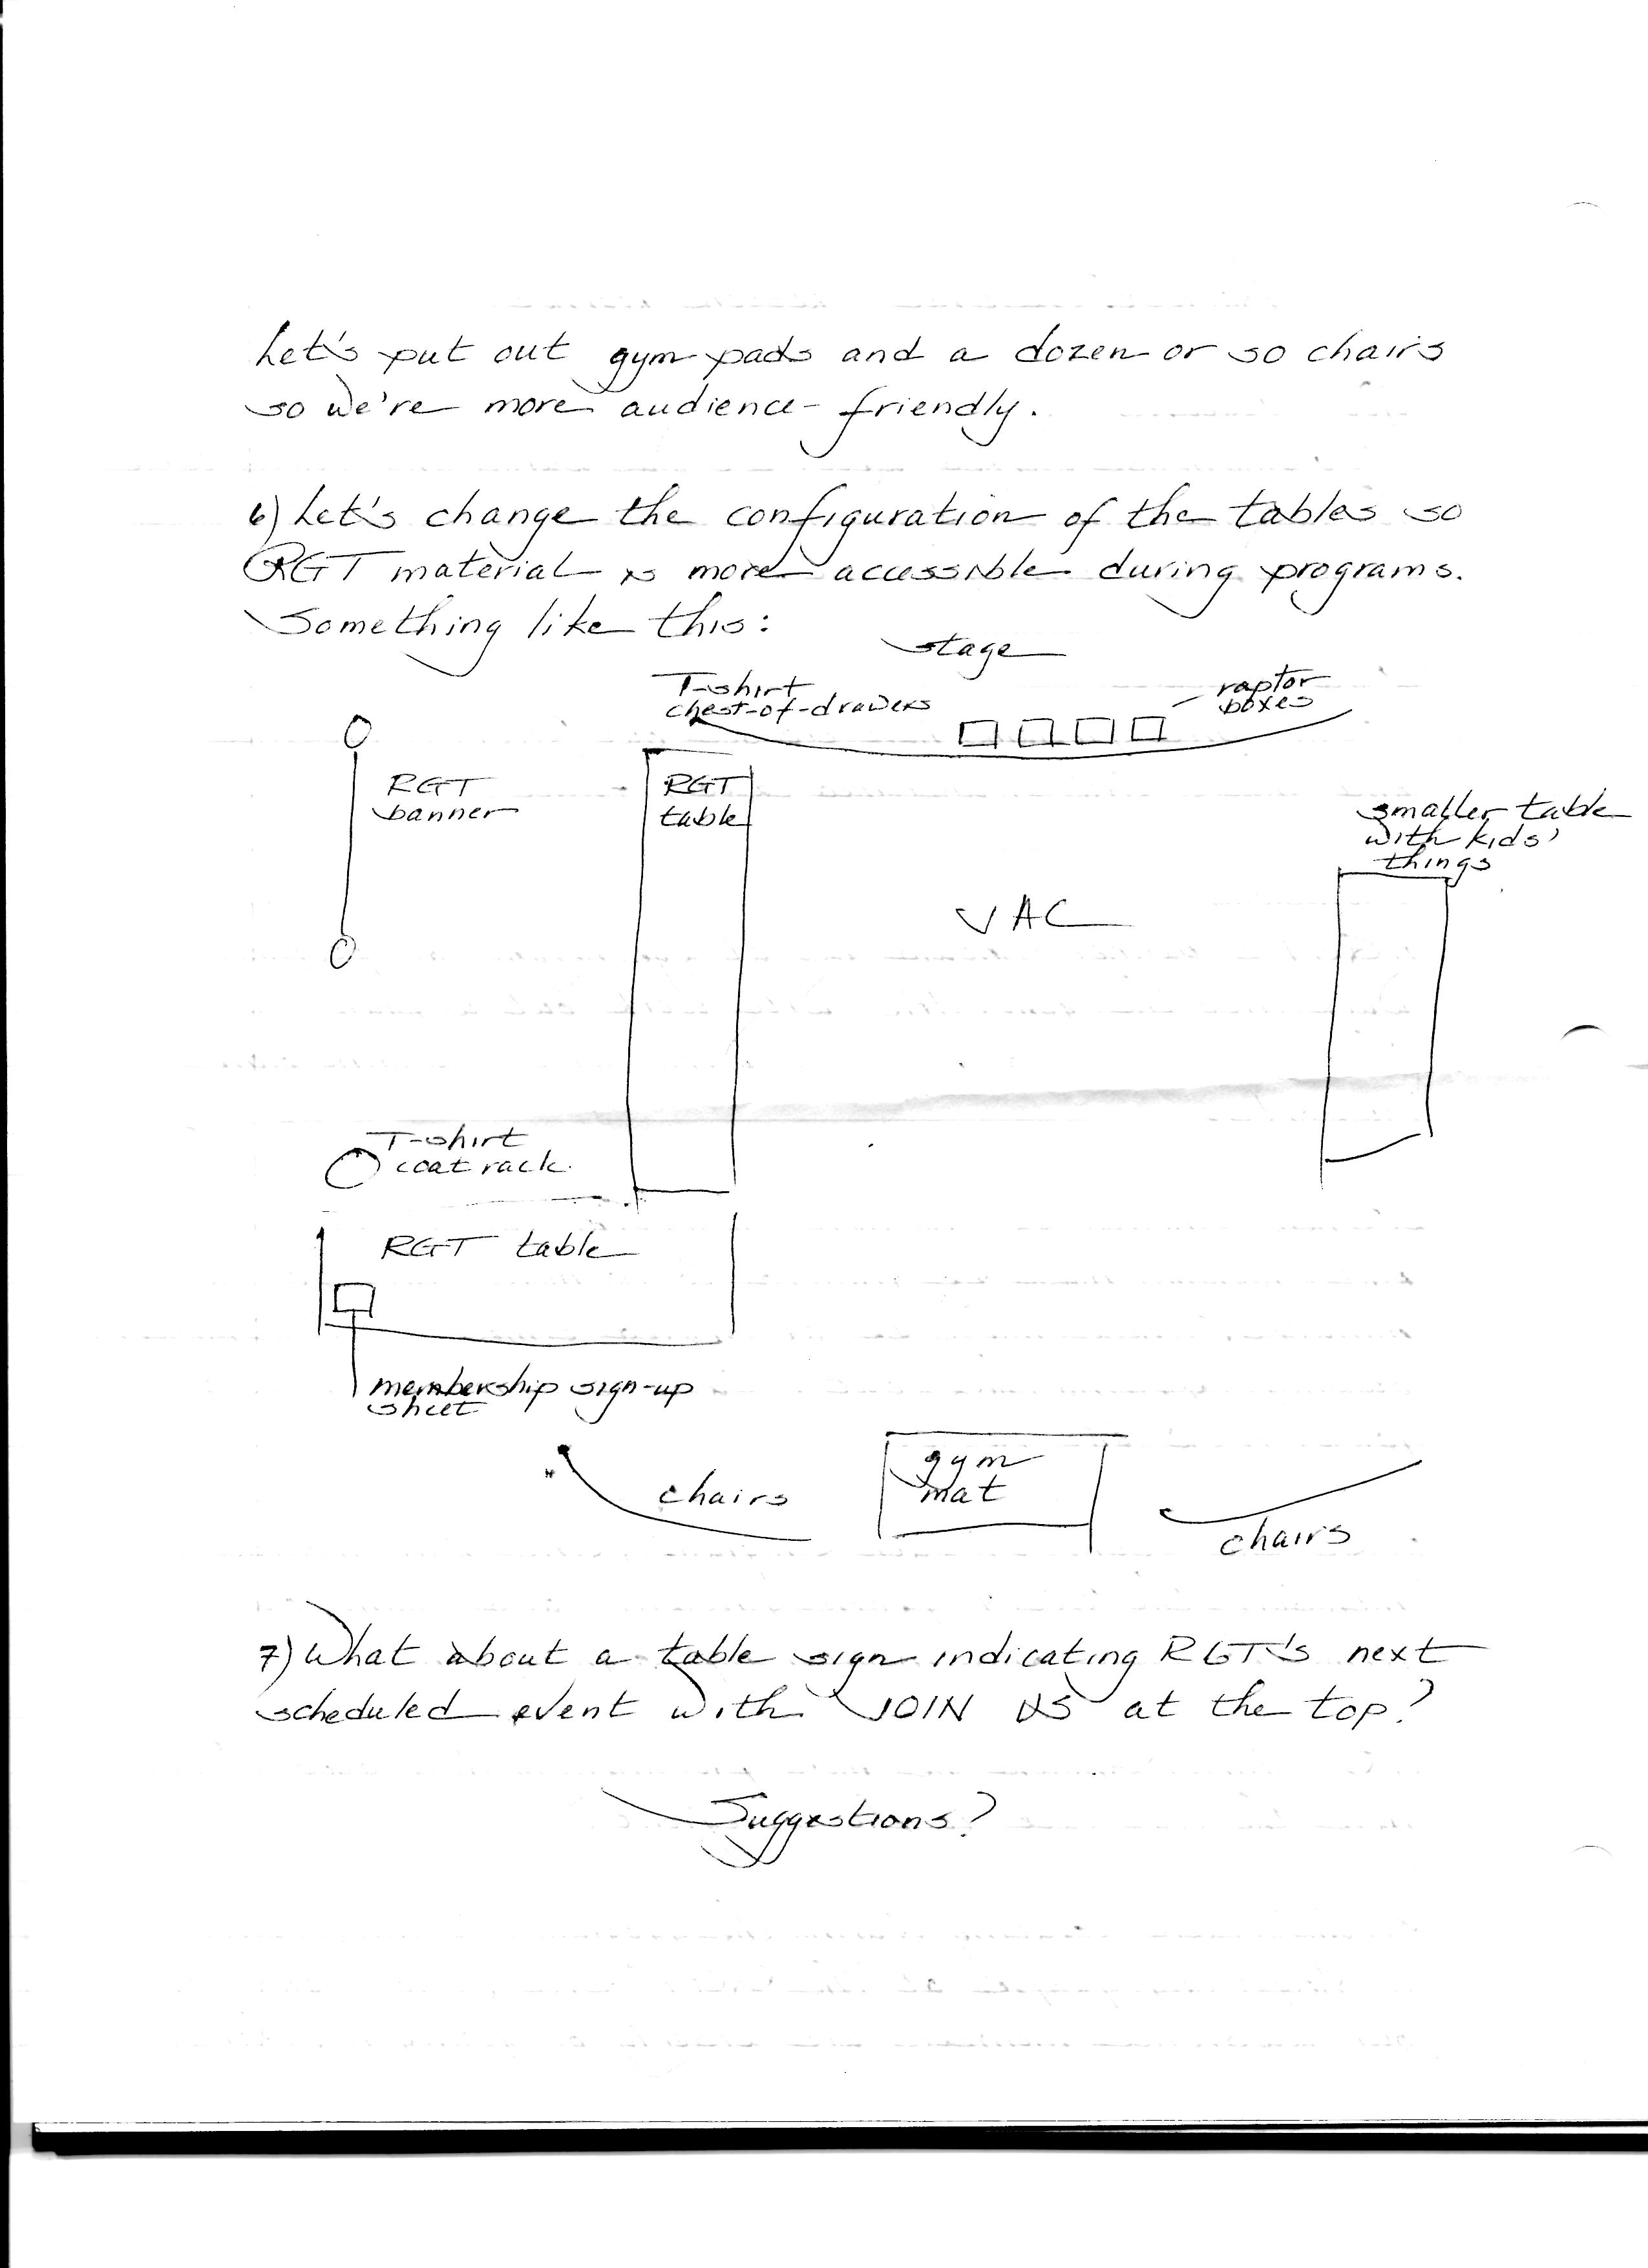 Let's put out gym pads and a dozen or so chairs
so we're more audience-friendly.
6) Let's change the configuration of the tables so
RGT material is more accessible during programs.
Something like this:
stage
T-shirt
chest-of-drawers
raptor
boxes
RGT
banner
RGT
table
smaller table
with kids'
things
VAC
T-shirt
coat rack
RGT table
membership sign-up
sheet
chairs
gym
mat
chairs
7) What about a table sign indicating RGT's next
scheduled event with JOIN US at the top?
Suggestions?